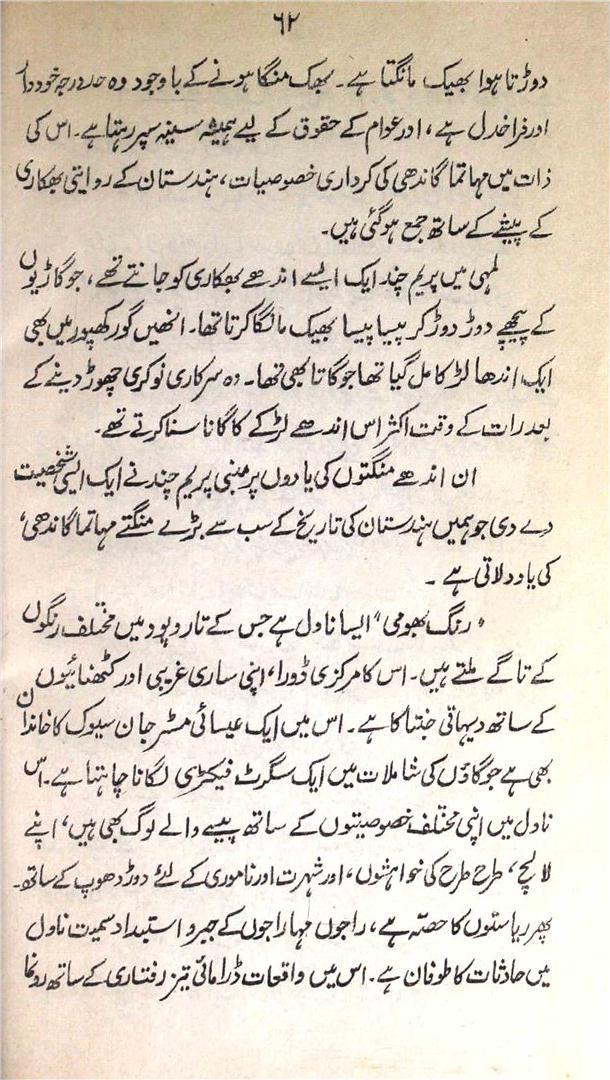 ۶۲
دوڑتا ہوا بھیک مانگتا ہے۔ بھک منگا ہونے کے باوجود وہ حد درجہ خوددار
اور فراخدل ہے، اور عوام کے حقوق کے لیے ہمیشہ سینہ سپر رہتا ہے۔ اس کی
ذات میں مہاتما گاندھی کی کرداری خصوصیات، ہندستان کے روایتی بھکاری
کے پیشے کے ساتھ جمع ہو گئی ہیں۔
لمہی میں پریم چند ایک ایسے اندھے بھکاری کو جانتے تھے، جو گاڑیوں
کے پیچھے دوڑ دوڑ کر پیسا پیسا بھیک مانگا کرتا تھا۔ انھیں گورکھپور میں بھی
ایک اندھا لڑکا مل گیا تھا جو گاتا بھی تھا۔ وہ سرکاری نوکری چھوڑ دینے کے
بعد رات کے وقت اکثر اس اندھے لڑکے کا گانا سنا کرتے تھے۔
ان اندھے منگتوں کی یادوں پر مبنی پریم چند نے ایک ایسی شخصیت
دے دی جو ہمیں ہندستان کی تاریخ کے سب سے بڑے منگتے مہاتما گاندھی،
کی یاد دلاتی ہے۔
"رنگ بھومی" ایسا ناول ہے جس کے تار و پود میں مختلف رنگوں
کے تاگے ملتے ہیں۔ اس کا مرکزی ڈورا، اپنی ساری غریبی اور کٹھنائیوں
کے ساتھ دیہاتی جنتا کا ہے۔ اس میں ایک عیسائی مسٹر جان سیوک کا خاندان
بھی ہے جو گاؤں کی شاملات میں ایک سگرٹ فیکٹری لگانا چاہتا ہے۔ اس
ناول میں اپنی مختلف خصوصیتوں کے ساتھ پیسے والے لوگ بھی ہیں، اپنے
لالچ، طرح طرح کی خواہشوں، اور شہرت اور ناموری کے لئے دوڑ دھوپ کے ساتھ۔
پھر ریاستوں کا حصّہ ہے، راجوں مہاراجوں کے جبر و استبداد سمیت ناول
میں حادثات کا طوفان ہے۔ اس میں واقعات ڈرامائی تیز رفتاری کے ساتھ رونما